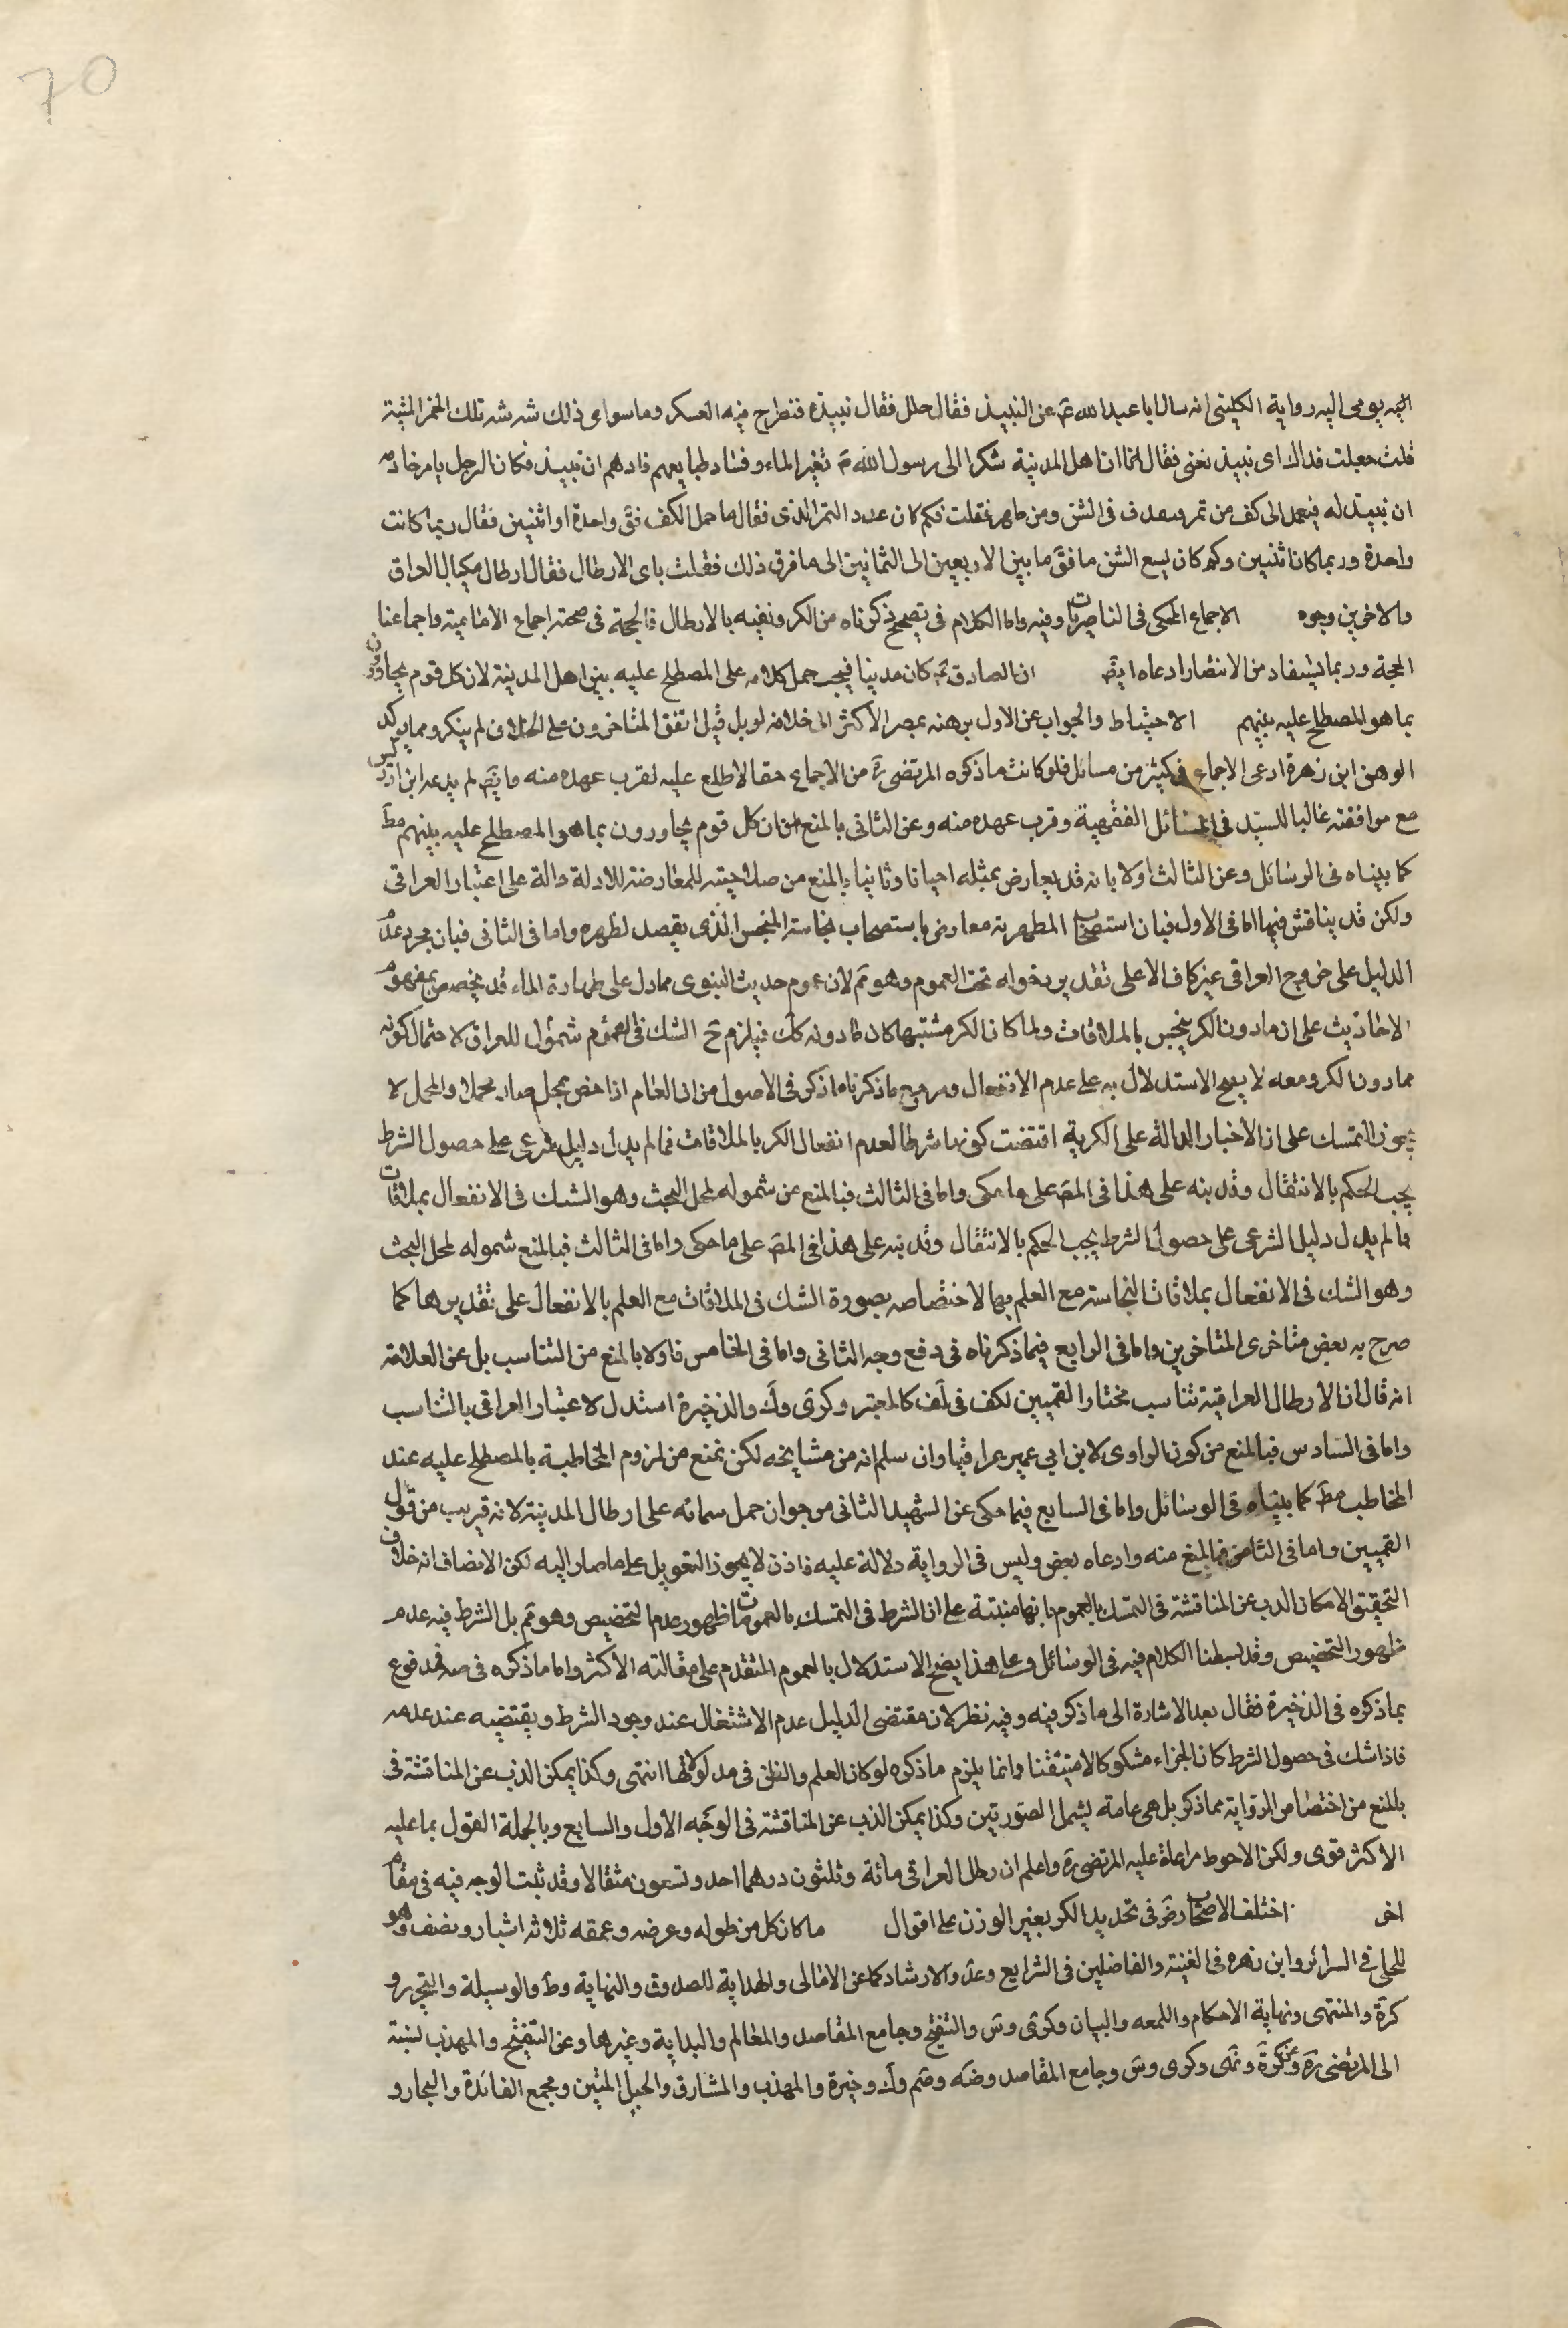 70
اليه يومى اليه رواية الكلينى انه سال ابا عبد الله ع عن النبيذ فقال حلل فقال ننبذه فنطرح فيه العسكر وماسواى ذلك شه شه تلك الخمر المنتنة
قلت جعلت فداك اى نبيذ تعنى فقال ان اهل المدينة شكوا الى رسول الله ص تغير الماء وفساد طبايعهم فامرهم ان ننبيذ فكان الرجل يامر خادمه
ان ننبيذ له فيعمد الى كف من تمر فى الشن ومن طهر فقلت فكم كان عدد التمر الذى فقال ما حمل الكف فق واحدة او اثنين فقال ربما كانت
واحدة وربما كان اثنيين وكم كان يسع الشن ما فق ما بين الاربعين الى الثمانين الى ما فرق ذلك فقلت باى الارطال فقال ارطال مكيال العراق
والاخرين وجوه الاجماع المحكى فى الناصريات وفيه واما الكلام فى تصحيح ذكرناه من الكر ونفيه بالارطال فالحجة فى صحته اجماع الامامية واجماعنا
الحجة وربما يستفاد من الانتصار ادعاه ايض ان الصادق ع كان مدينا فيجب حمل كلامه على المصطلح عليه بين اهل المدينة لان كل قوم يحاورون
بما هو المصطلح عليه بينهم الاحتياط والجواب عن الاول بوهنه بمصير الاكثر الى خلافه لو بل قيل اتفق المتاخرون على الخلاف لم ينكر ومما يوكد
الوهن ابن زهرة ادعى الاجماع فى كثير من مسائل فلو كانت ما ذكره المرتضى ره من الاجماع حقا لاطلع عليه لقرب عهده منه وايض لم يدعه ابن ادريس
مع موافقته غالبا للسيد فى المسائل الفقهية وقرب عهده منه وعن الثانى بالمنع من ان كل قوم يحاورون بما هو المصطلح عليه بينهم مط
كما بيناه فى الوسائل وعن الثالث اولا بانه قد يعارض بمثله احيانا وثانيا بالمنع من صلاحيته للمعارضة للادلة دالة على اعتبار العراقى
ولكن قد يناقش فيها اما فى الاول فبان استصحاب المطهرية معارض باستصحاب نجاسة المنجس الذى يقصد تطهيره واما فى الثانى فبان مجرد عدم
الدليل على خروج العراقى غير كاف الا على تقدير دخوله تحت العموم وهو مم لان عموم حديث النبوى مما دل على طهارة الماء قد يخصص بمفهوم
الاحاديث على ان ما دون الكر ينجس بالملاقات ولما كان الكر مشتبها كان ما دونه كك فيلزم ح الشك فى العموم شمول للعراق لاحتمال كونه
مما دون الكر ومعه لا يصح الاستدلال به على عدم الانفعال ومرجع ما ذكرناه ما ذكر فى الاصول من ان العام اذا خص بمجمل صار مجملا والمجمل لا
يجوز التمسك على ان الاخبار الدالة على الكرية اقتضت كونها شرطا لعدم انفعال الكر بالملاقات فما لم يدل دليل شرعى على حصول الشرط
يجب الحكم بالانتقال وقد نبه على هذا فى المص على ما حكى واما فى الثالث فبالمنع عن شموله لمحل البحث وهو الشك فى الانفعال بملاقات
فما لم يدل دليل الشرعى على حصول الشرط يجب الحكم بالانتقال وقد نبه على هذا فى المص على ما حكى واما فى الثالث فبالمنع شموله لمحل البحث
وهو الشك فى الانفعال بملاقات النجاسة مع العلم بها لاختصاصه بصورة الشك فى الملاقات مع العلم بالانفعال على تقديرها كما
صرح به بعض متاخرى المتاخرين واما فى الرابع فيما ذكرناه فى دفع وجه الثانى واما فى الخامس فاولا بالمنع من التناسب بل عن العلامة
انه قال ان الارطال العراقية تناسب مختار القميين لكف فى لف كالمعتبر وكرى وك والذخيرة استدل لاعتبار العراقى بالتناسب
واما فى السادس فبالمنع من كون الراوى لابن ابى عمير عراقيا وان سلم انه من مشايخه لكن نمنع من لزوم المخاطبة بالمصطلح عليه عند
المخاطب مط كما بيناه فى الوسائل واما فى السابع فيما حكى عن الشهيد الثانى من جواز حمل ستمائه على ارطال المدينة لانه قريب من قول
القميين واما فى الثامن فبالمنع منه وادعاه بعض وليس فى الرواية دلالة عليه فاذن لا يجوز التعويل على ما صار اليه لكن الانصاف انه خلاف
التحقيق الامكان الذب عن المناقشة فى التمسك بالعموم بانها مبتنية على ان الشرط فى التمسك بالعمومات ظهور عدم التخصيص وهو مم بل الشرط فيه عدم
ظهور التخصيص وقد بسطنا الكلام فيه فى الوسائل وعلى هذا يصح الاستدلال بالعموم المتقدم على مقالته الاكثر واما ما ذكره فى ضه فمدفوع
بما ذكره فى الذخيرة فقال بعد الاشارة الى ما ذكر فيه وفيه نظر لان مقتضى الدليل عدم الاشتغال عند وجود الشرط ويقتضيه عند عدمه
فاذا شك فى حصول الشرط كان الجزاء مشكوكا لامتيقنا وانما يلزم ما ذكره لو كان العلم والظن فى مدلولاتها انتهى وكذا يمكن الذب عن المناقشة فى
بالمنع من اختصاص الرواية بما ذكر بل هى عامة يشمل الصورتين وكذا يمكن الذب عن المناقشة فى الوجه الاول والسابع وبالجملة القول بما عليه
الاكثر قوى ولكن الاحوط مراعاة عليه المرتضى ره واعلم ان رطل العراقى مائة وثلثون درهما احد وتسعون مثقالا وقد ثبت الوجه فيه فى مقام
اخر اختلف الاصحاب رض فى تحديد الكر بغير الوزن على اقوال ما كان كل من طوله وعرضه وعمقه ثلاثه اشبار ونصف وهو
للحلى فى السرائر وابن زهره فى الغنية والفاضلين فى الشرايع وعد والارشاد كما عن الامالى والهداية للصدوق والنهاية وط والوسيلة والتحرير و
كرة والمنتهى ونهاية الاحكام واللمعه والبيان وكرى وس والتنقيح وجامع المقاصد والمعالم والبداية وغيرها وعن التنقيح والمهذب لنسبة
الى المرتضى ره وعن كرة ونهى وكرى وس وجامع المقاصد وضه وضم وك وخيرة والمهذب والمشارق والحبل المتين ومجمع الفائدة والبحار و